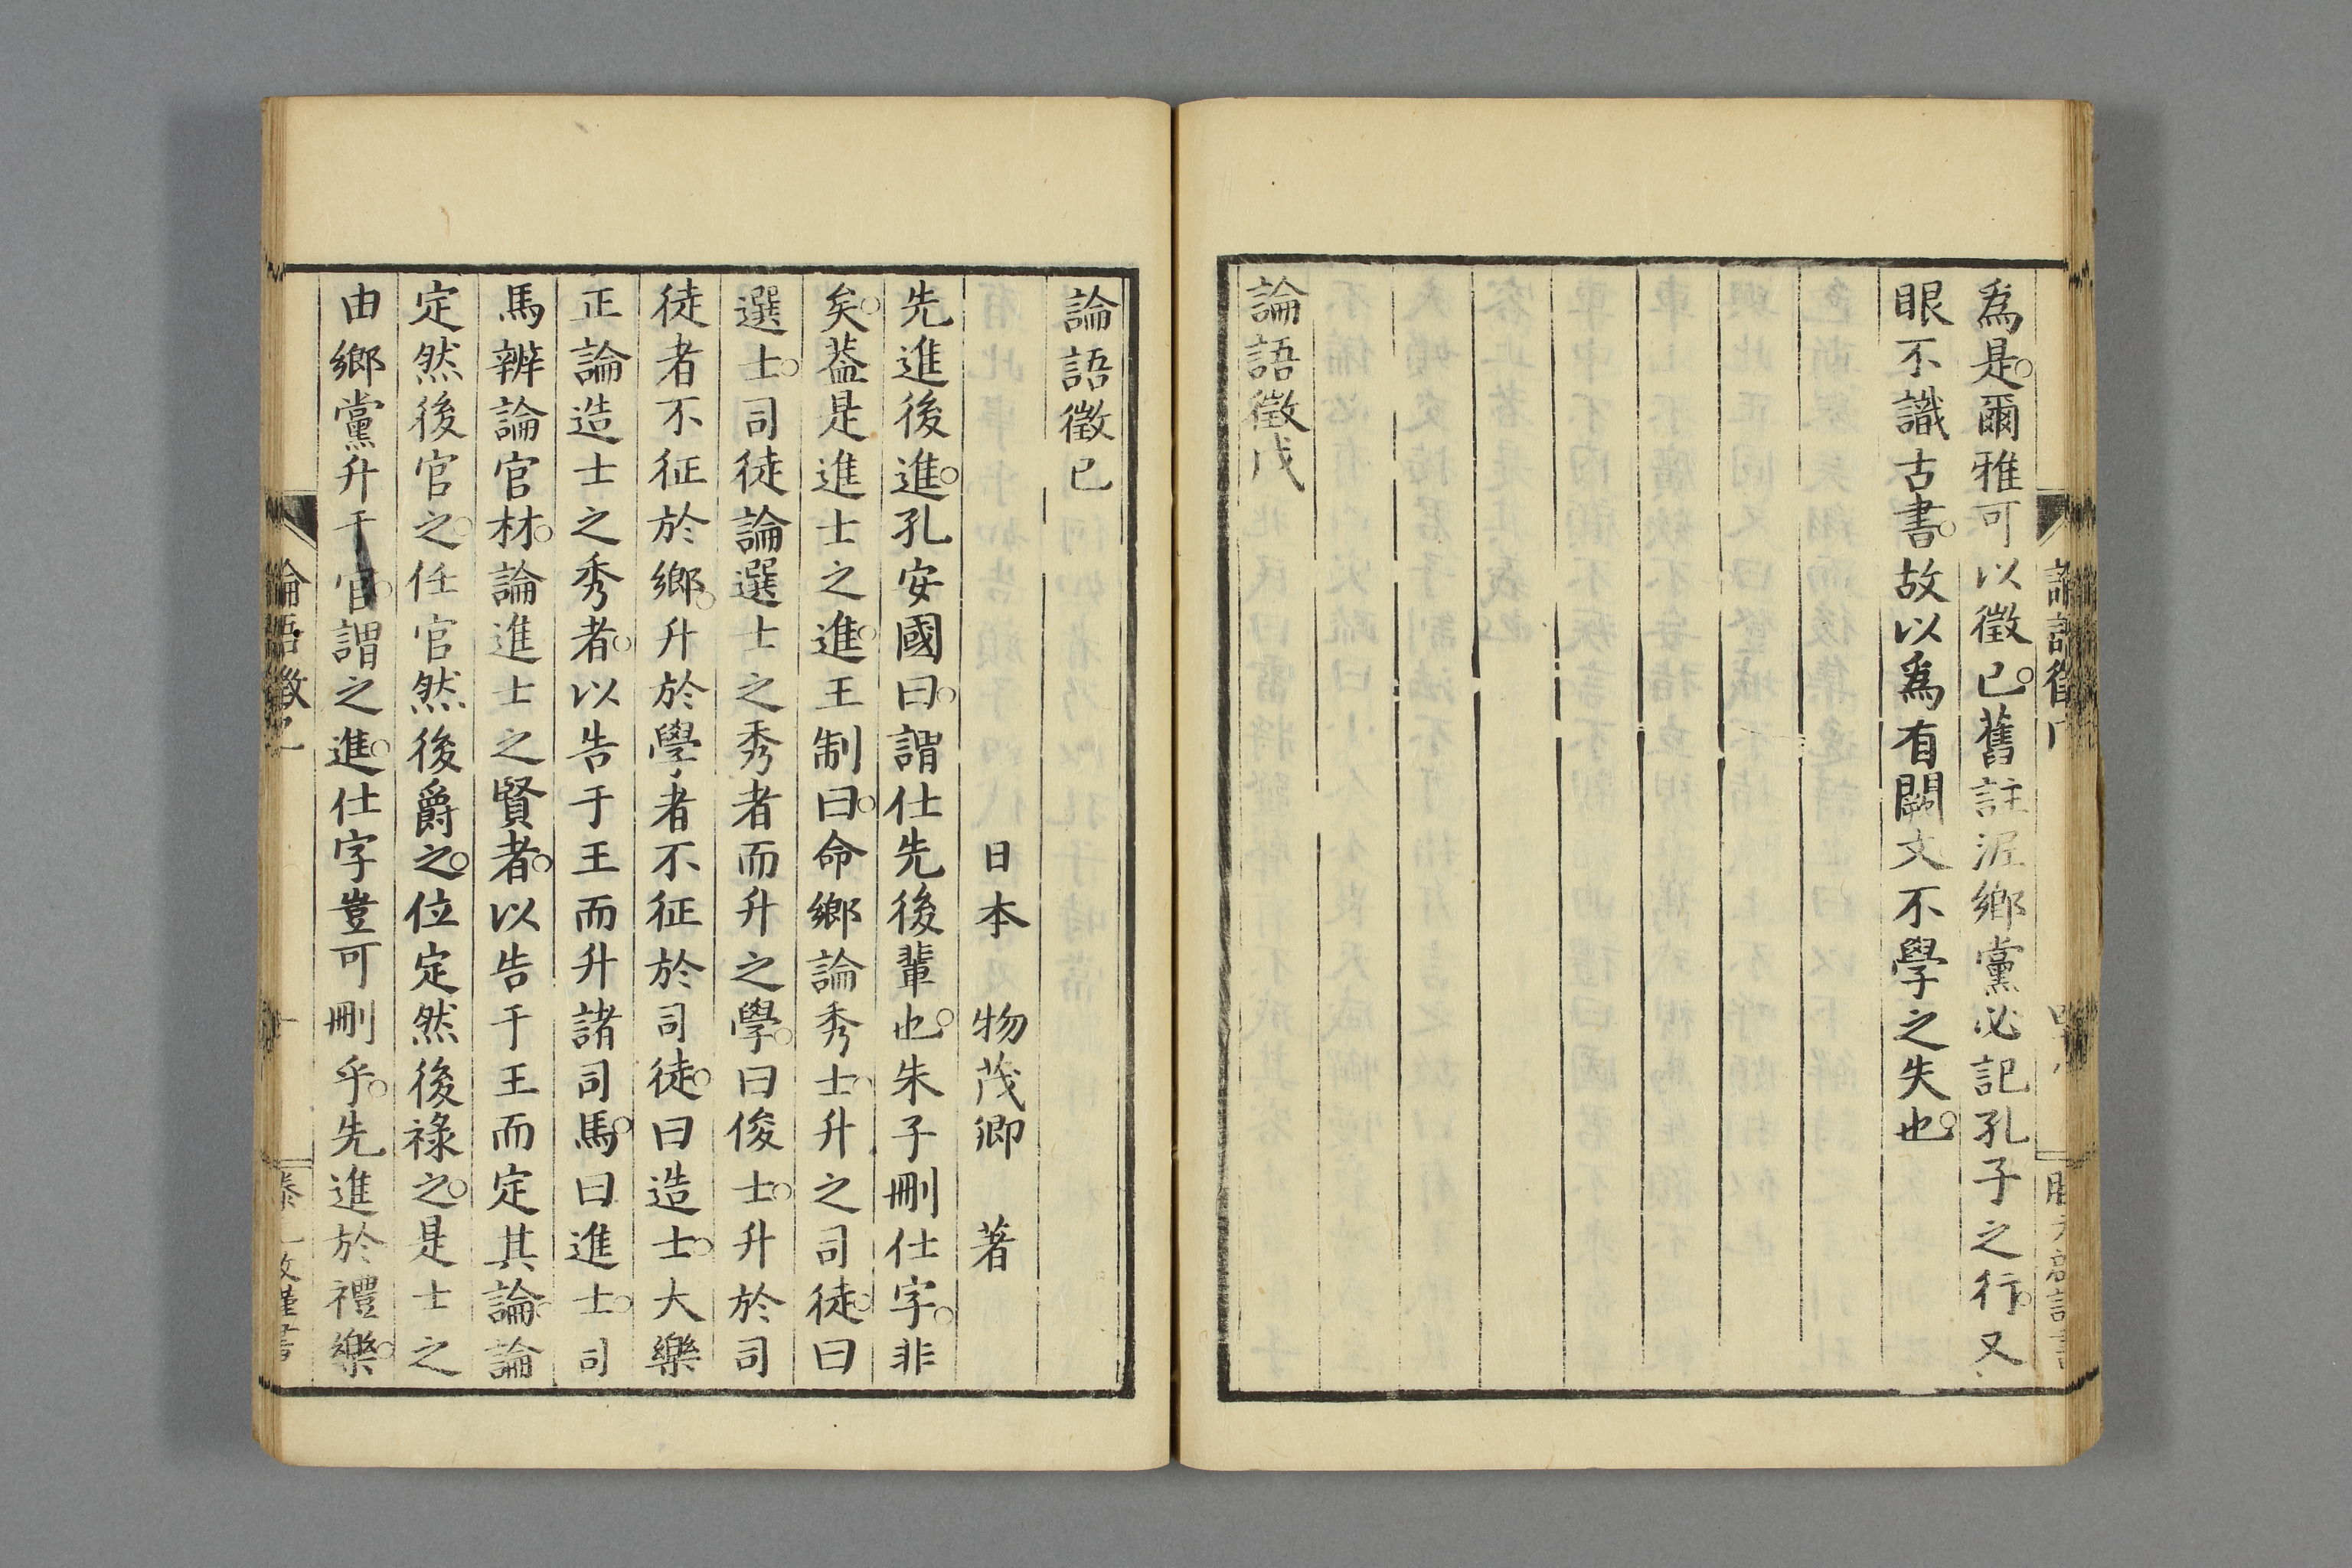 爲是。爾雅可以徵已。舊註泥鄉黨必記孔子之行。又
眼不識古書。故以爲有闕文不學之失也。
論語徵戊
論語徵己
日本 物茂卿 著
先進後進。孔安國曰。謂仕先後輩也。朱子刪仕字。非
矣。葢是進士之進。王制曰。命鄉論秀士。升之司徒。曰
選士。司徒論選士之秀者而升之學。曰俊士。升於司
徒者不征於鄉。升於學者不征於司徒。曰造士。大樂
正論造士之秀者。以告于王而升諸司馬。曰進士。司
馬辨論官材。論進士之賢者。以告于王而定其論。論
定然後官之。任官然後爵之。位定然後祿之。是士之
由鄉黨升于官。謂之進。仕字豈可刪乎。先進於禮樂。
論語徵